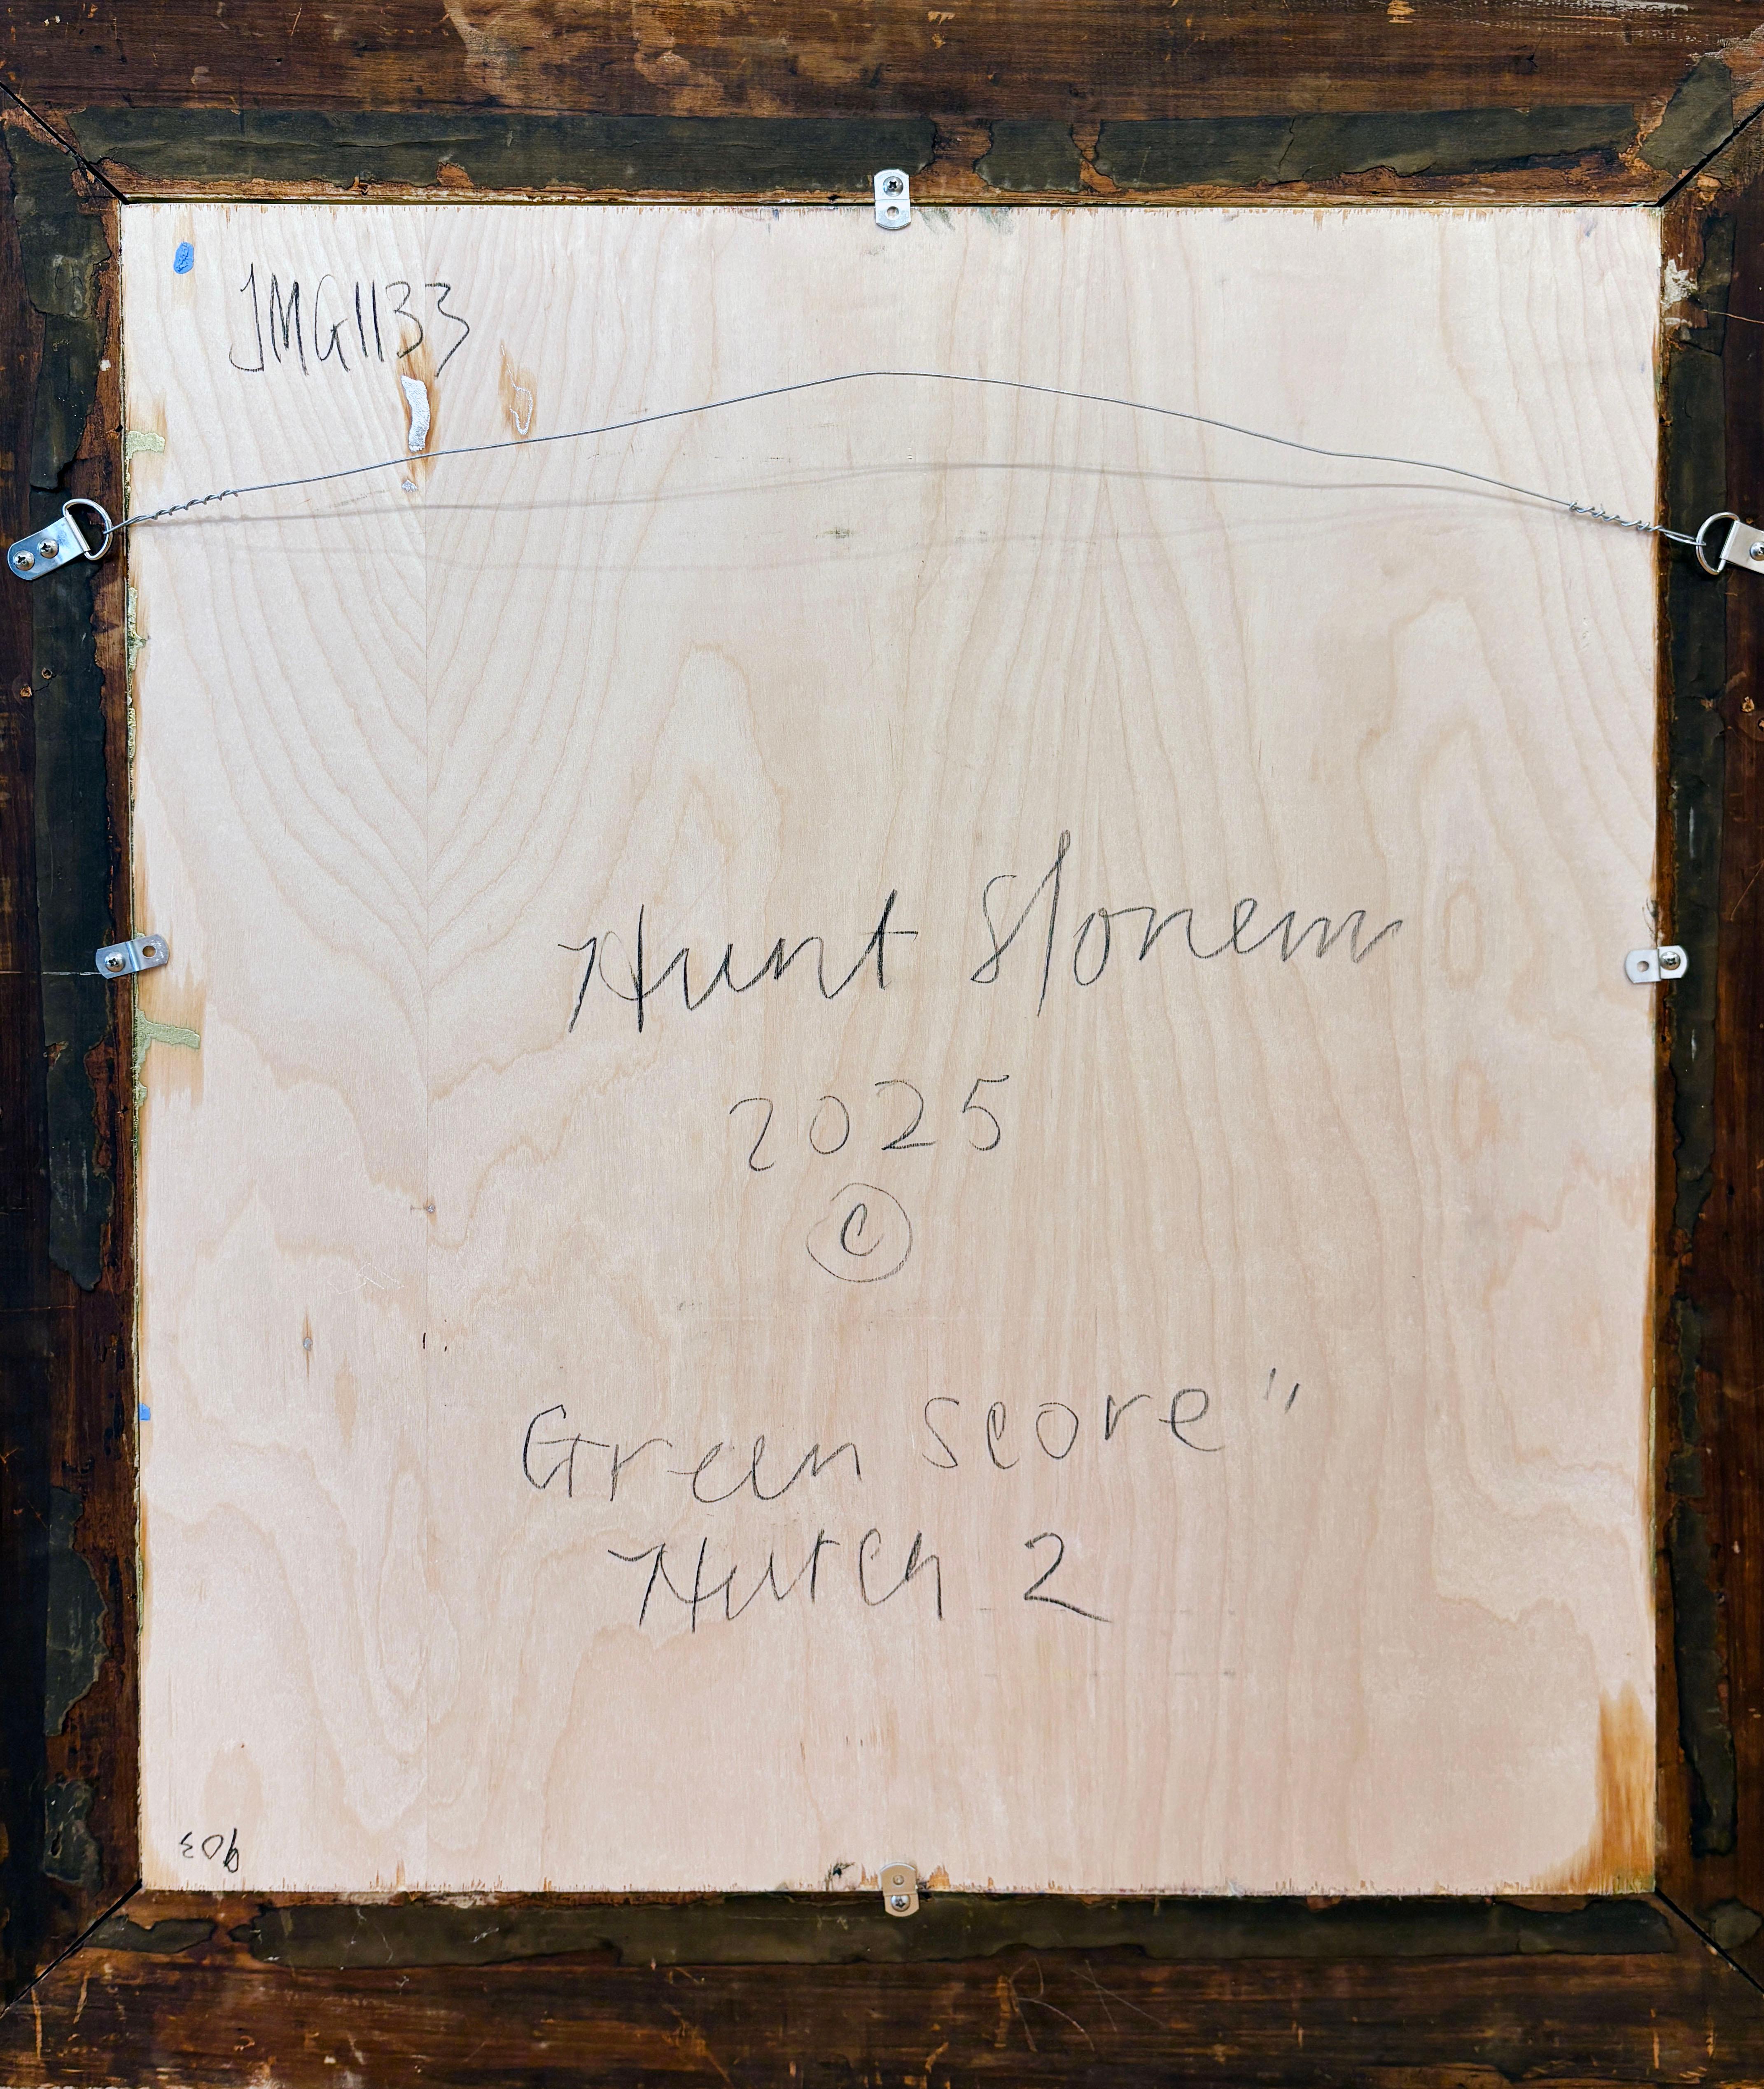 JMG1133
Hunt Slonem
2025
©
Green Score"
Hutch 2
903